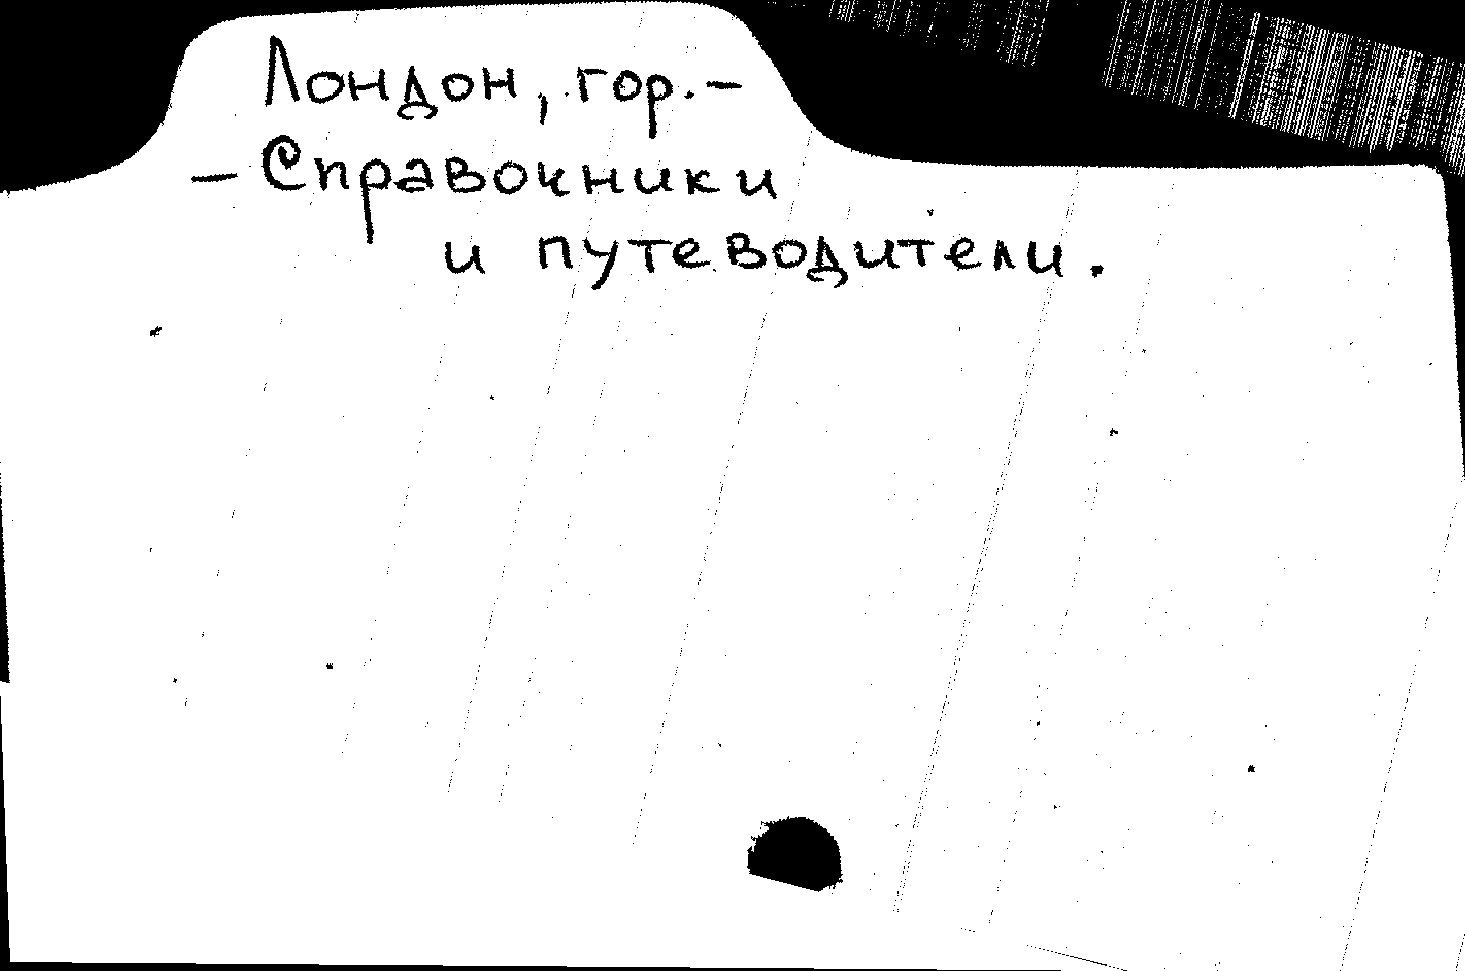 Лондон, гор. –
– Справочники
и путеводители.